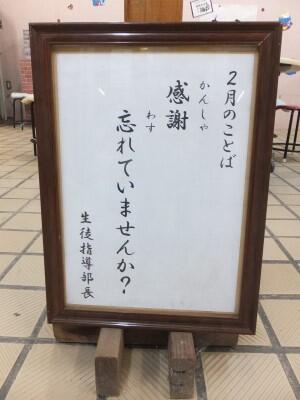 2月のことば
かんしゃ
感謝
わす
忘れていませんか?
生徒指導部長